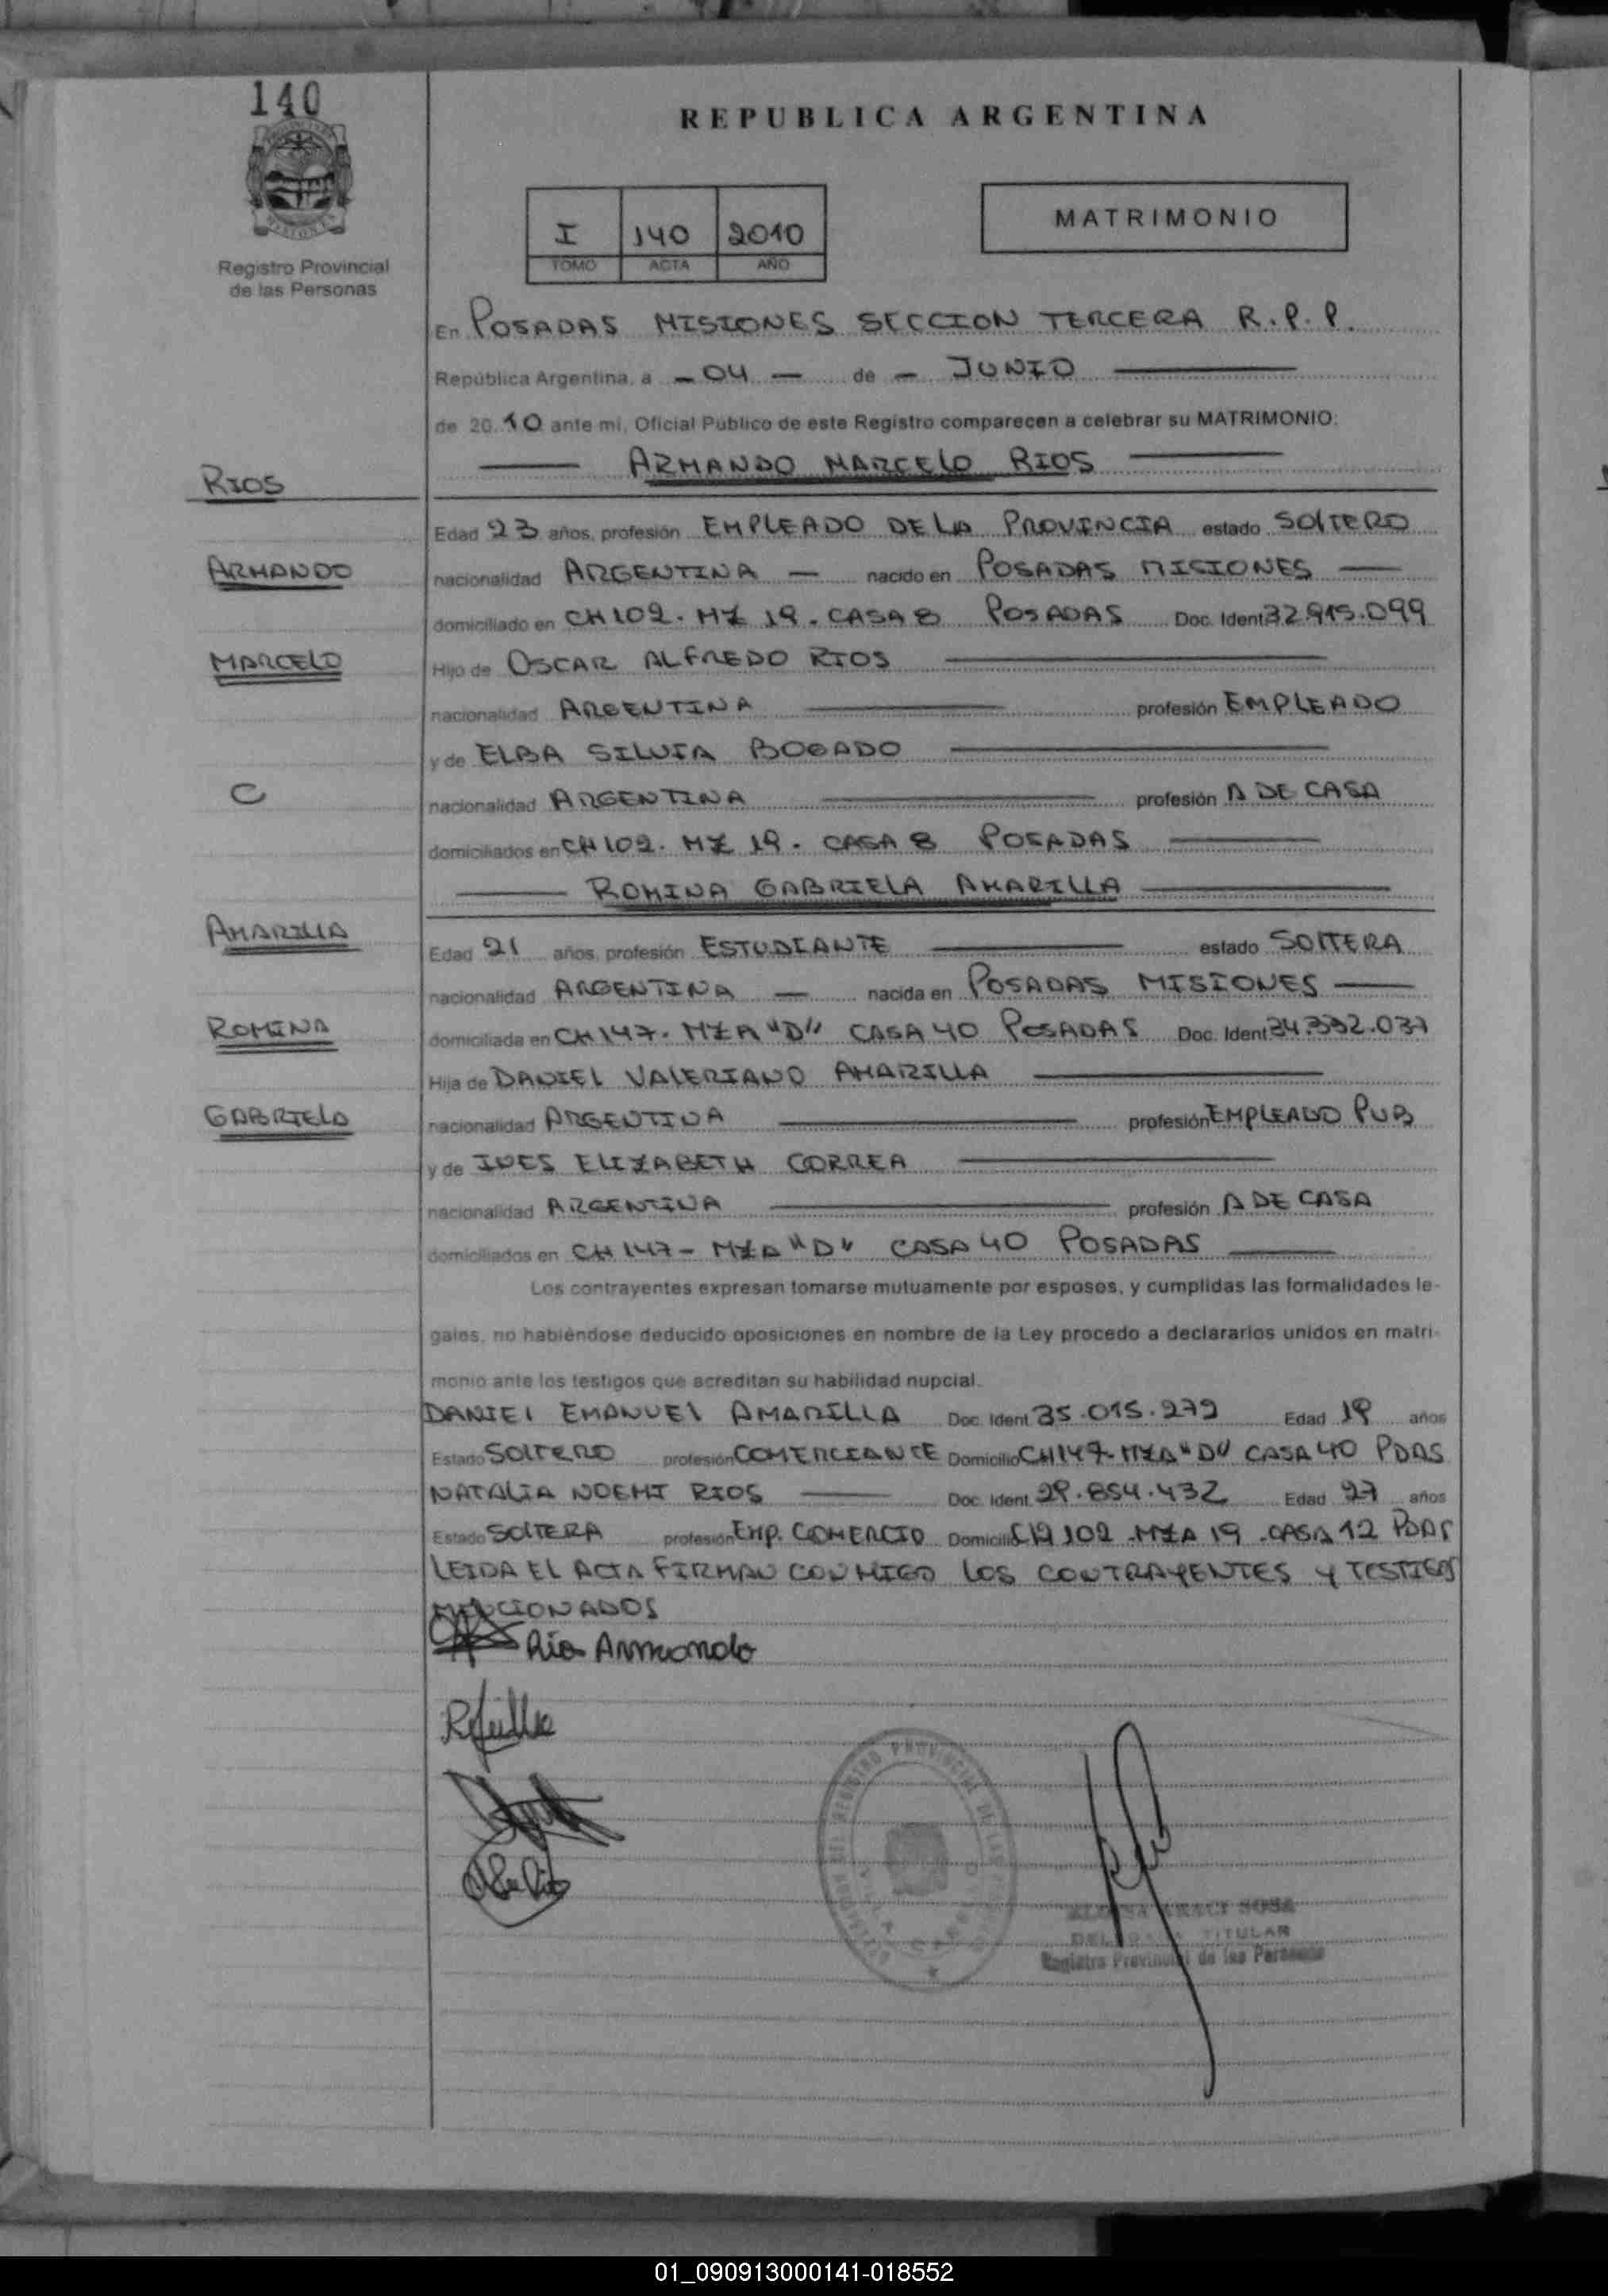 140
REPUBLICA ARGENTINA
I 140 2010
TOMO ACTA AÑO
MATRIMONIO
Registro Provincial
de las Personas
En POSADAS MISIONES SECCION TERCERA R.P.P.
República Argentina, a - 04 - de - JUNIO
de 20 10 ante mi, Oficial Público de este Registro comparecen a celebrar su MATRIMONIO:
ARMANDO MARCELO RIOS
RIOS
Edad 23 años, profesión EMPLEADO DE LA PROVINCIA estado SOLTERO
ARMANDO
nacionalidad ARGENTINA - nacido en POSADAS MISIONES
domiciliado en CH 102. MZ 19. CASA 8 POSADAS Doc. Ident 32.915.099
MARCELO
Hijo de OSCAR ALFREDO RIOS
nacionalidad ARGENTINA profesión EMPLEADO
y de ELBA SILVIA BOGADO
C
nacionalidad ARGENTINA profesión A DE CASA
domiciliados en CH 102. MZ 19. CASA 8 POSADAS
ROMINA GABRIELA AMARILLA
AMARILLA
Edad 21 años, profesión ESTUDIANTE estado SOLTERA
nacionalidad ARGENTINA - nacida en POSADAS MISIONES
ROMINA
domiciliada en CH 147. MZA "D" CASA 40 POSADAS Doc. Ident 34.332.037
Hija de DANIEL VALERIANO AMARILLA
GABRIELA
nacionalidad ARGENTINA profesión EMPLEADO PUB
y de INES ELIZABETH CORREA
nacionalidad ARGENTINA profesión A DE CASA
domiciliados en CH 147 - MZA "D" CASA 40 POSADAS
Los contrayentes expresan tomarse mutuamente por esposos, y cumplidas las formalidades le-
gales, no habiéndose deducido oposiciones en nombre de la Ley procedo a declararlos unidos en matri-
monio ante los testigos que acreditan su habilidad nupcial.
DANIEL EMANUEL AMARILLA Doc. Ident 35.015.272 Edad 19 años
Estado SOLTERO profesión COMERCIANTE Domicilio CH 147 - MZA "D" CASA 40 PDAS
NATALIA NOEMI RIOS Doc. Ident. 29.854.432 Edad 27 años
Estado SOLTERA profesión EMP. COMERCIO Domicilio CH 102 - MZA 19 . CASA 12 PDAS
LEIDA EL ACTA FIRMAN CONMIGO LOS CONTRAYENTES Y TESTIGOS
MENCIONADOS
Rios Armando
SOSA
TITULAR
Registro Provincial de las Personas
01_090913000141-018552